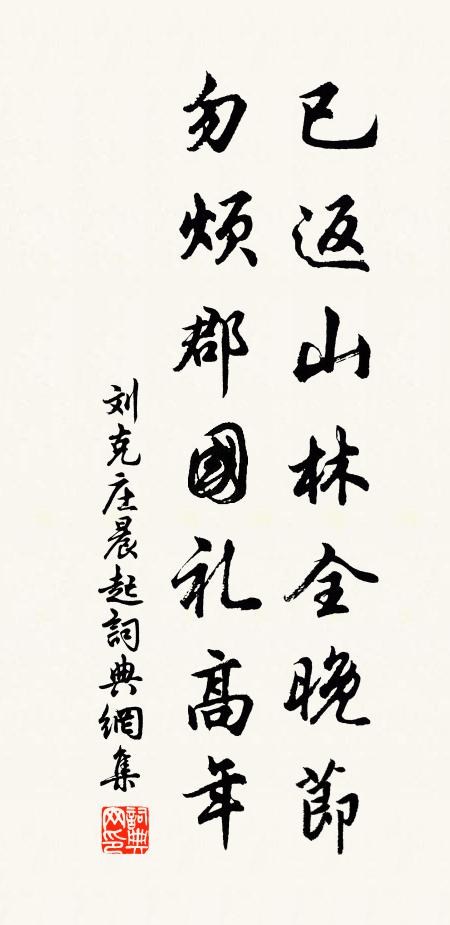 已返山林全晚節
勿煩郡國礼高年
刘克庄晨起詞典網集
詞典網印